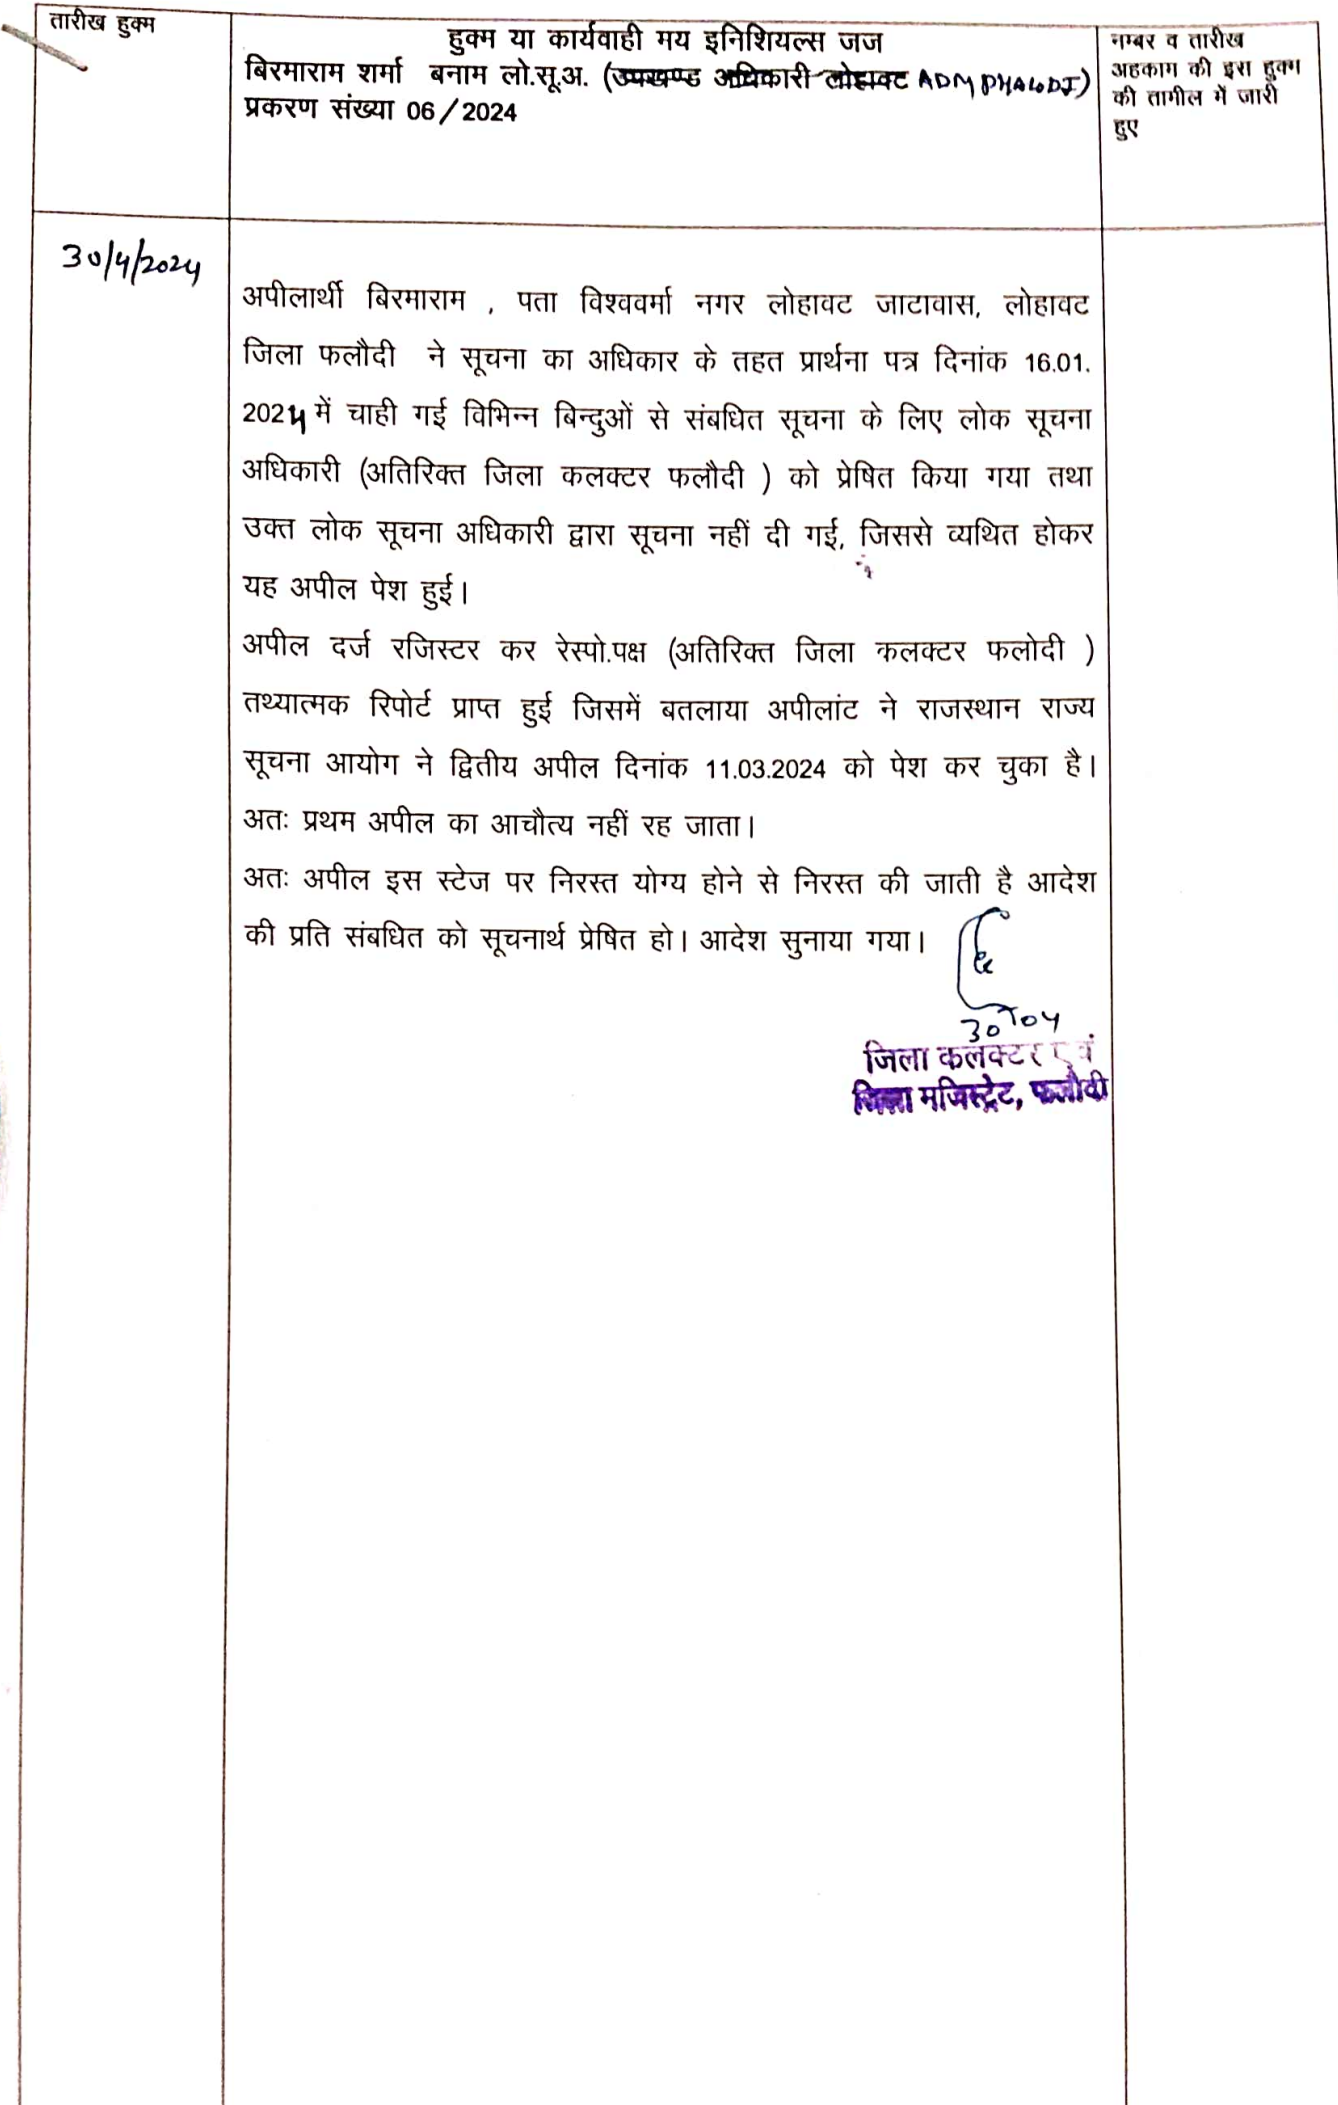 तारीख हुक्म
हुक्म या कार्यवाही मय इनिशियल्स जज
बिरमाराम शर्मा बनाम लो.सू.अ. (उपखण्ड अधिकारी लोहावट ADM PHALODI)
प्रकरण संख्या 06/2024
नम्बर व तारीख
अहकाम की इस हुक्म
की तामील में जारी
हुए
30/4/2024
अपीलार्थी बिरमाराम , पता विश्ववर्मा नगर लोहावट जाटावास, लोहावट
जिला फलौदी ने सूचना का अधिकार के तहत प्रार्थना पत्र दिनांक 16.01.
2024 में चाही गई विभिन्न बिन्दुओं से संबधित सूचना के लिए लोक सूचना
अधिकारी (अतिरिक्त जिला कलक्टर फलौदी ) को प्रेषित किया गया तथा
उक्त लोक सूचना अधिकारी द्वारा सूचना नहीं दी गई, जिससे व्यथित होकर
यह अपील पेश हुई।
अपील दर्ज रजिस्टर कर रेस्पो.पक्ष (अतिरिक्त जिला कलक्टर फलोदी )
तथ्यात्मक रिपोर्ट प्राप्त हुई जिसमें बतलाया अपीलांट ने राजस्थान राज्य
सूचना आयोग ने द्वितीय अपील दिनांक 11.03.2024 को पेश कर चुका है।
अतः प्रथम अपील का आचौत्य नहीं रह जाता।
अतः अपील इस स्टेज पर निरस्त योग्य होने से निरस्त की जाती है आदेश
की प्रति संबधित को सूचनार्थ प्रेषित हो। आदेश सुनाया गया।
30/04
जिला कलक्टर एवं
जिला मजिस्ट्रेट, फलौदी